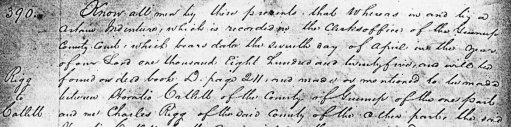 390. Know all men by these presents that Whereas in and by a
certain Indenture, which is recorded in the Clerks office of the Greenup
County Court, which bears date the seventh day of April in the year
of our Lord one thousand Eight hundred and twenty five, and will be
found in deed book D. page 211, and made or mentioned to be made
Rigg between Horatio Catlett of the County of Greenup of the one part
to and me Charles Rigg of the said County of the other part, the said
Catlett